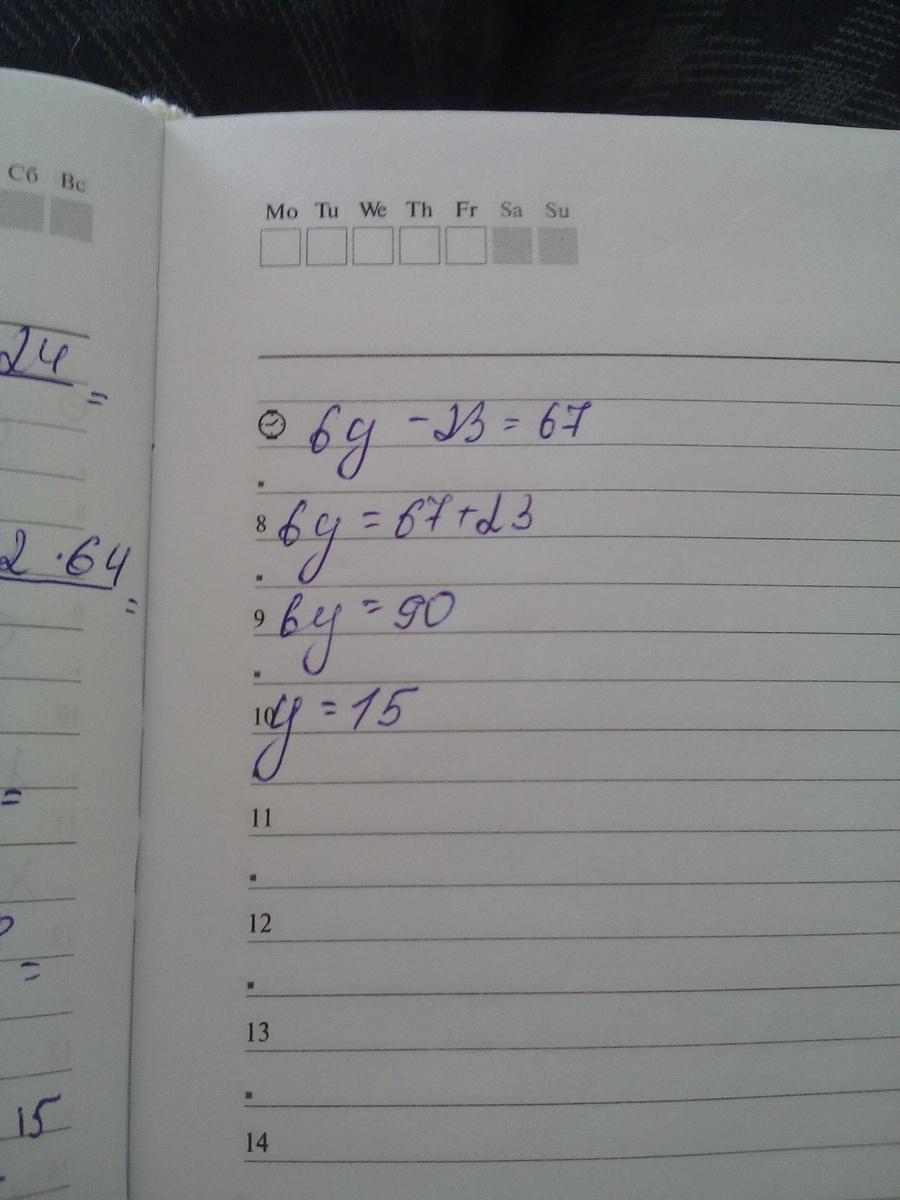 Сб Вс
24
=
2 · 64
=
=
=
15
Mo Tu We Th Fr Sa Su
6y - 23 = 67
8 6y = 67 + 23
9 6y = 90
10 y = 15
11
12
13
14